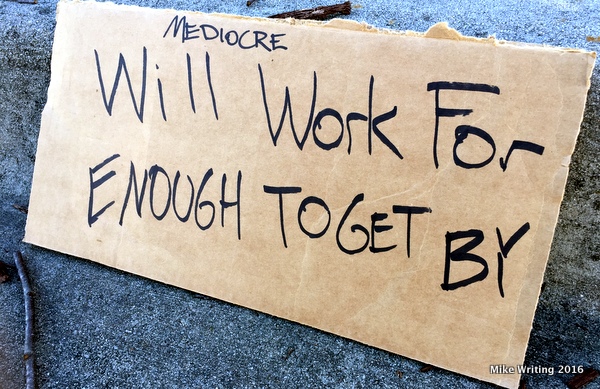 MEDIOCRE
Will Work For
ENOUGH TO GET BY
Mike Writing 2016